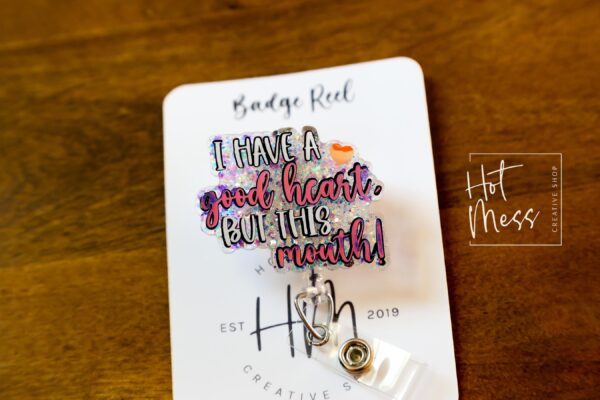 Badge Reel
I HAVE A
good heart,
BUT THIS
mouth!
EST HM 2019
CREATIVE
Hot
Mess
CREATIVE SHOP